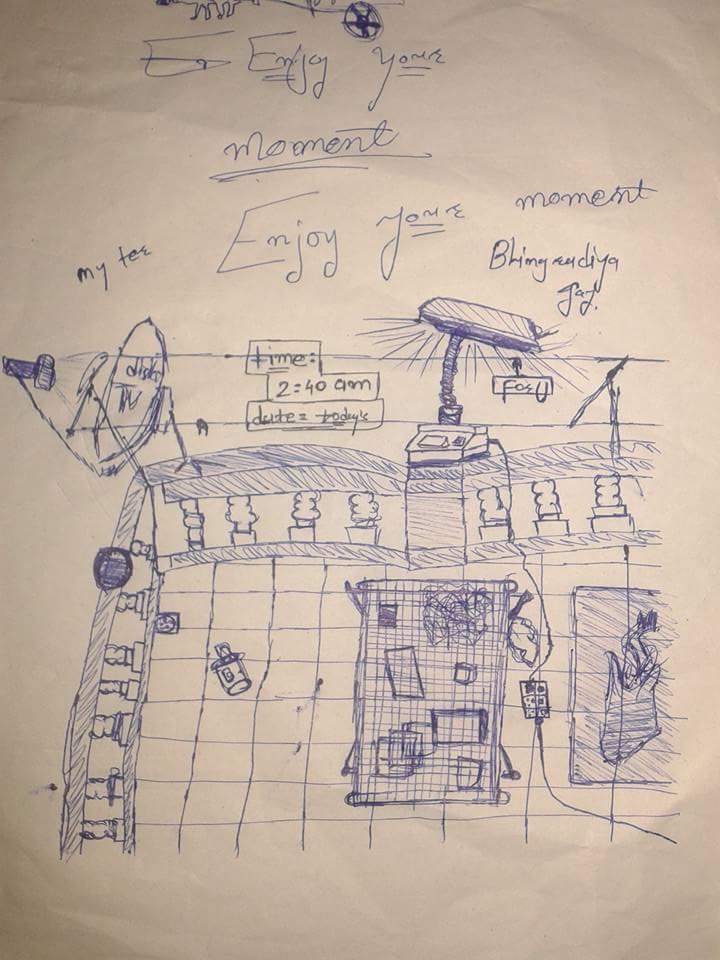 Enjoy youre
moment
Enjoy youre moment
my tee
Bhingradiya
Jay.
dish
TV
time:
2:40 am
date = today's
Focu
B